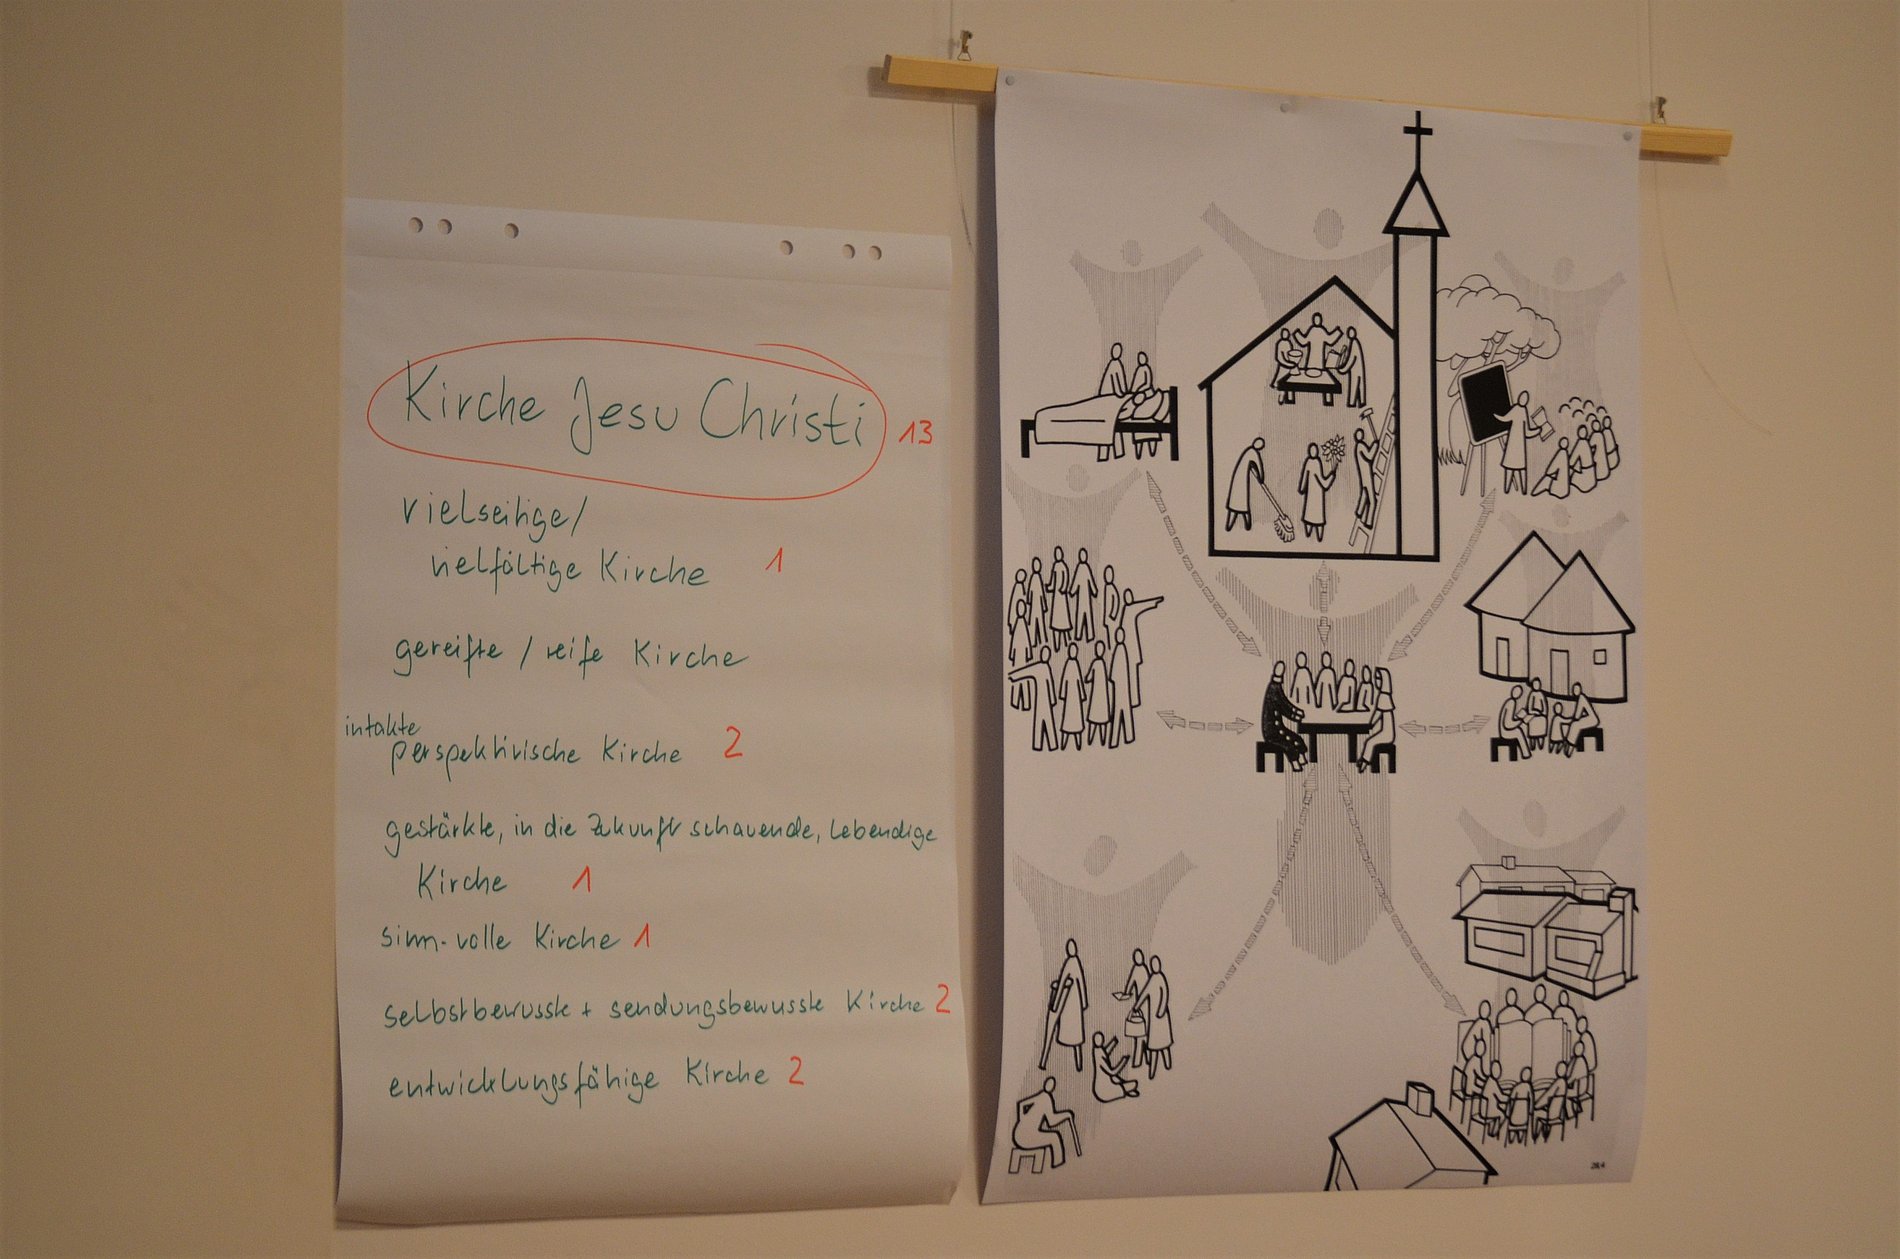 Kirche Jesu Christi 13
vielseitige/
vielfältige Kirche 1
gereifte / reife Kirche
intakte
perspektivische Kirche 2
gestärkte, in die Zukunft schauende, lebendige
Kirche 1
sinn-volle Kirche 1
selbstbewusste + sendungsbewusste Kirche 2
entwicklungsfähige Kirche 2